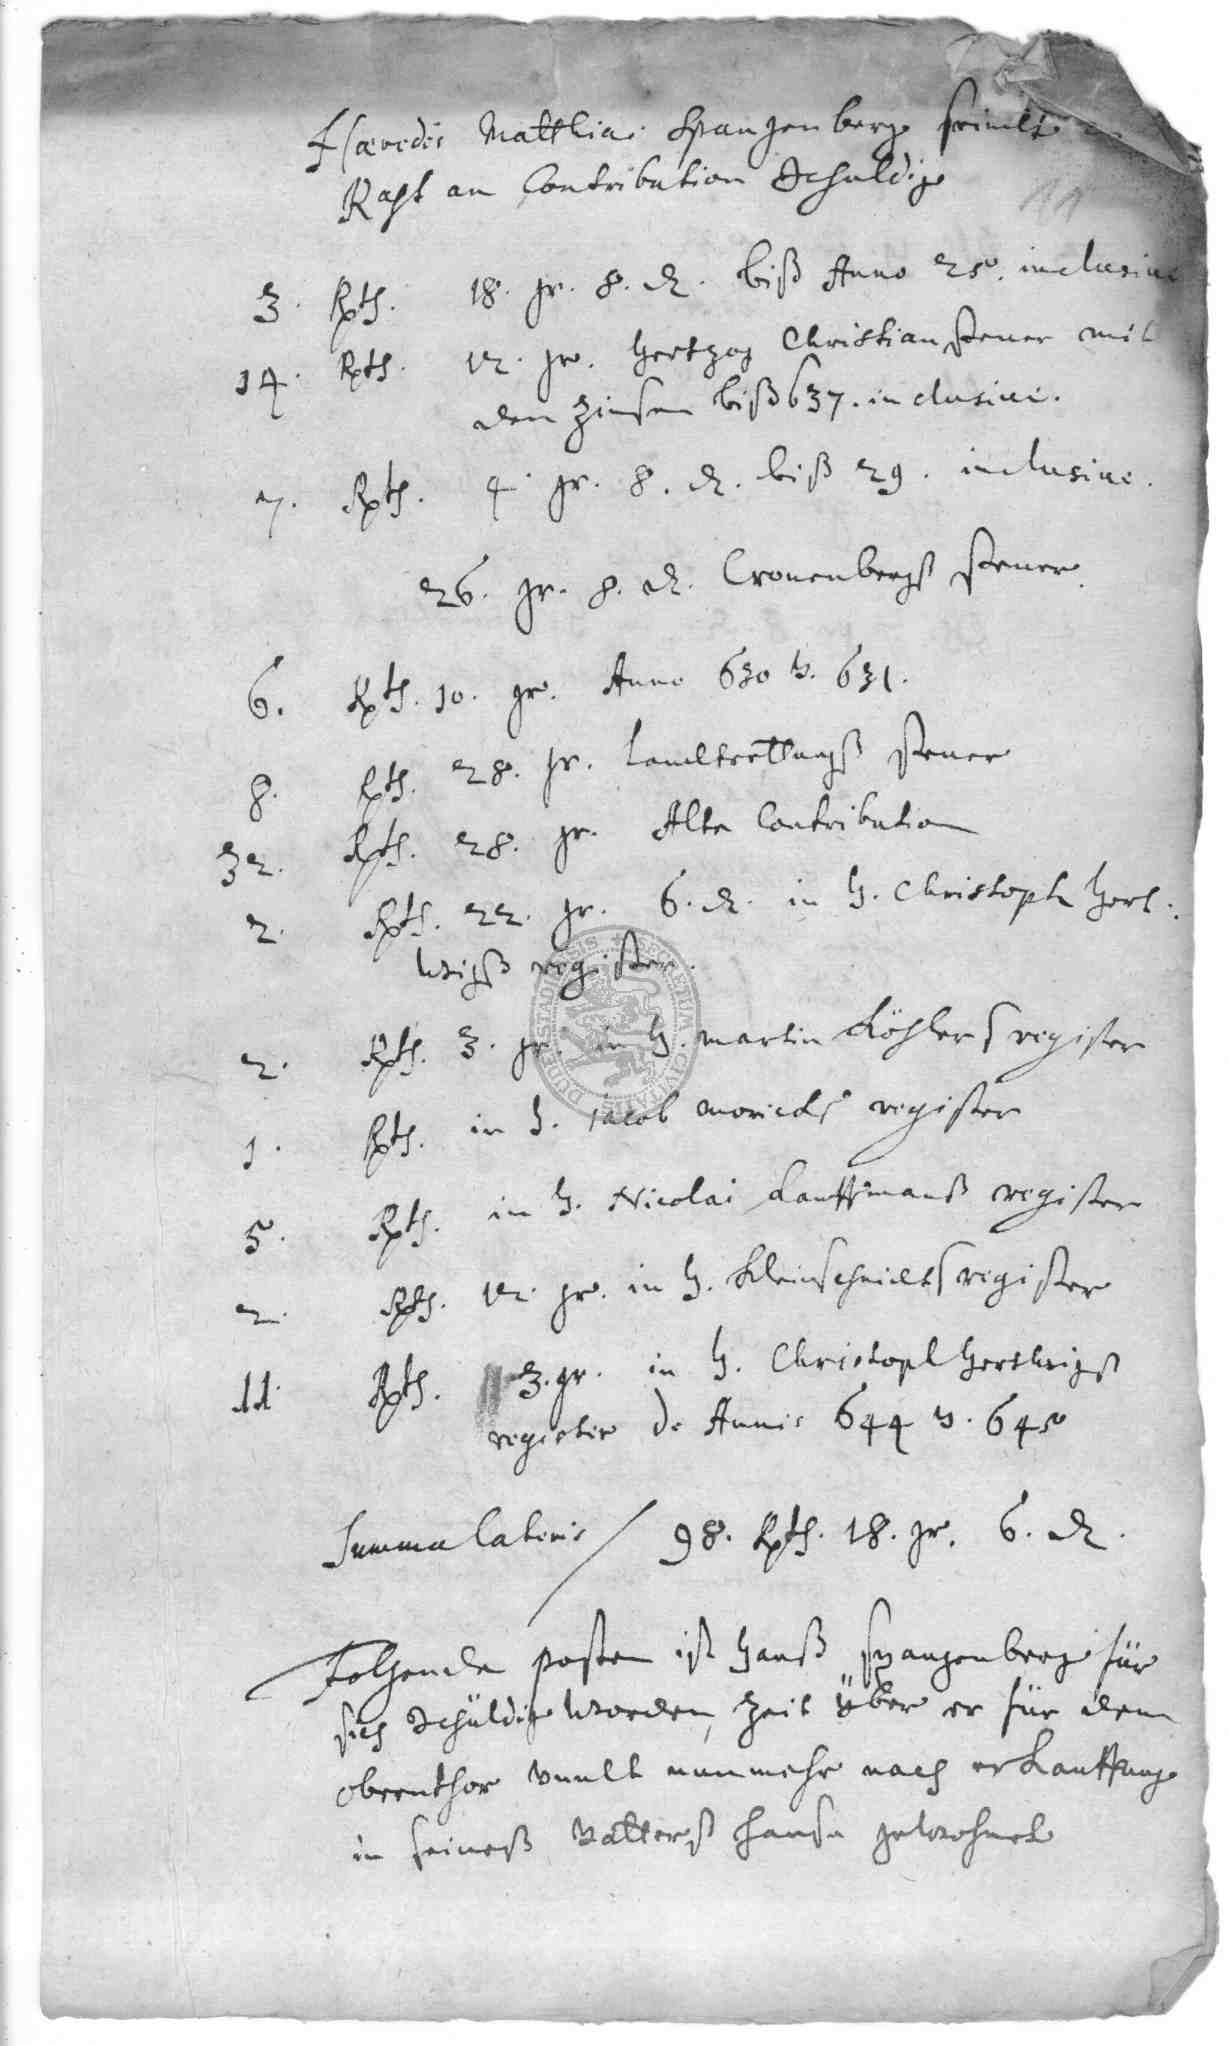 Haeredes Matthiae Spangenberg seindt
Rest an Contribution Schuldig
3. Rth. 18. gr. 8. d. biß Anno 25. inclusive
14. Rth. 12. gr. Hertzog Christian steuer mit
den Zinsen biß 637. inclusive.
7. Rth. 4. gr. 8. d. biß 29. inclusive.
26. gr. 8. d. Cronenbergß steuer.
6. Rth. 10. gr. Anno 630 u. 631.
8. Rth. 28. gr. Landtrettungß steuer
32. Rth. 28. gr. Alte Contribution
2. Rth. 22. gr. 6. d. in H. Christoph Hert.
wigß register.
2. Rth. 3. gr. in H. Martin Köhlers register
1. Rth. in H. Jacob register
5. Rth. in H. Nicolai Kauffmanß register
2. Rth. 12. gr. in H. Kleinschmidts register
11. Rth. 3. gr. in H. Christoph Hertwigß
register de Annis 644 u. 645
Summa lateris / 98. Rth. 18. gr. 6. d.
Folgende posten ist Hanß Spangenberg für
sich Schüldig worden, Zeit über er für dem
obernthor vundt nunmehr nach erkauffung
in seineß Vatterß Hause gewohnet
SECRETUM CIVITATIS DUDERSTADIENSIS